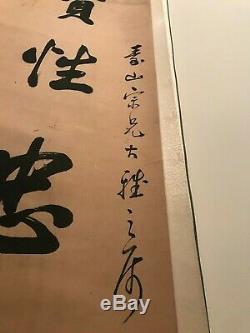 壽山宗兄大雅之屬
實性忠